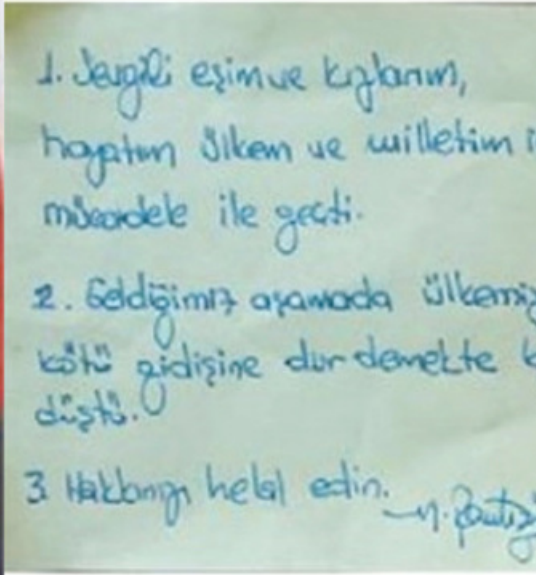 1. Sevgili eşim ve kızlarım,
hayatım ülkem ve milletim i
mücadele ile geçti.
2. Geldiğimiz aşamada ülkemiz
kötü gidişine dur demekte b
düştü.
3 Hakkınızı helal edin.